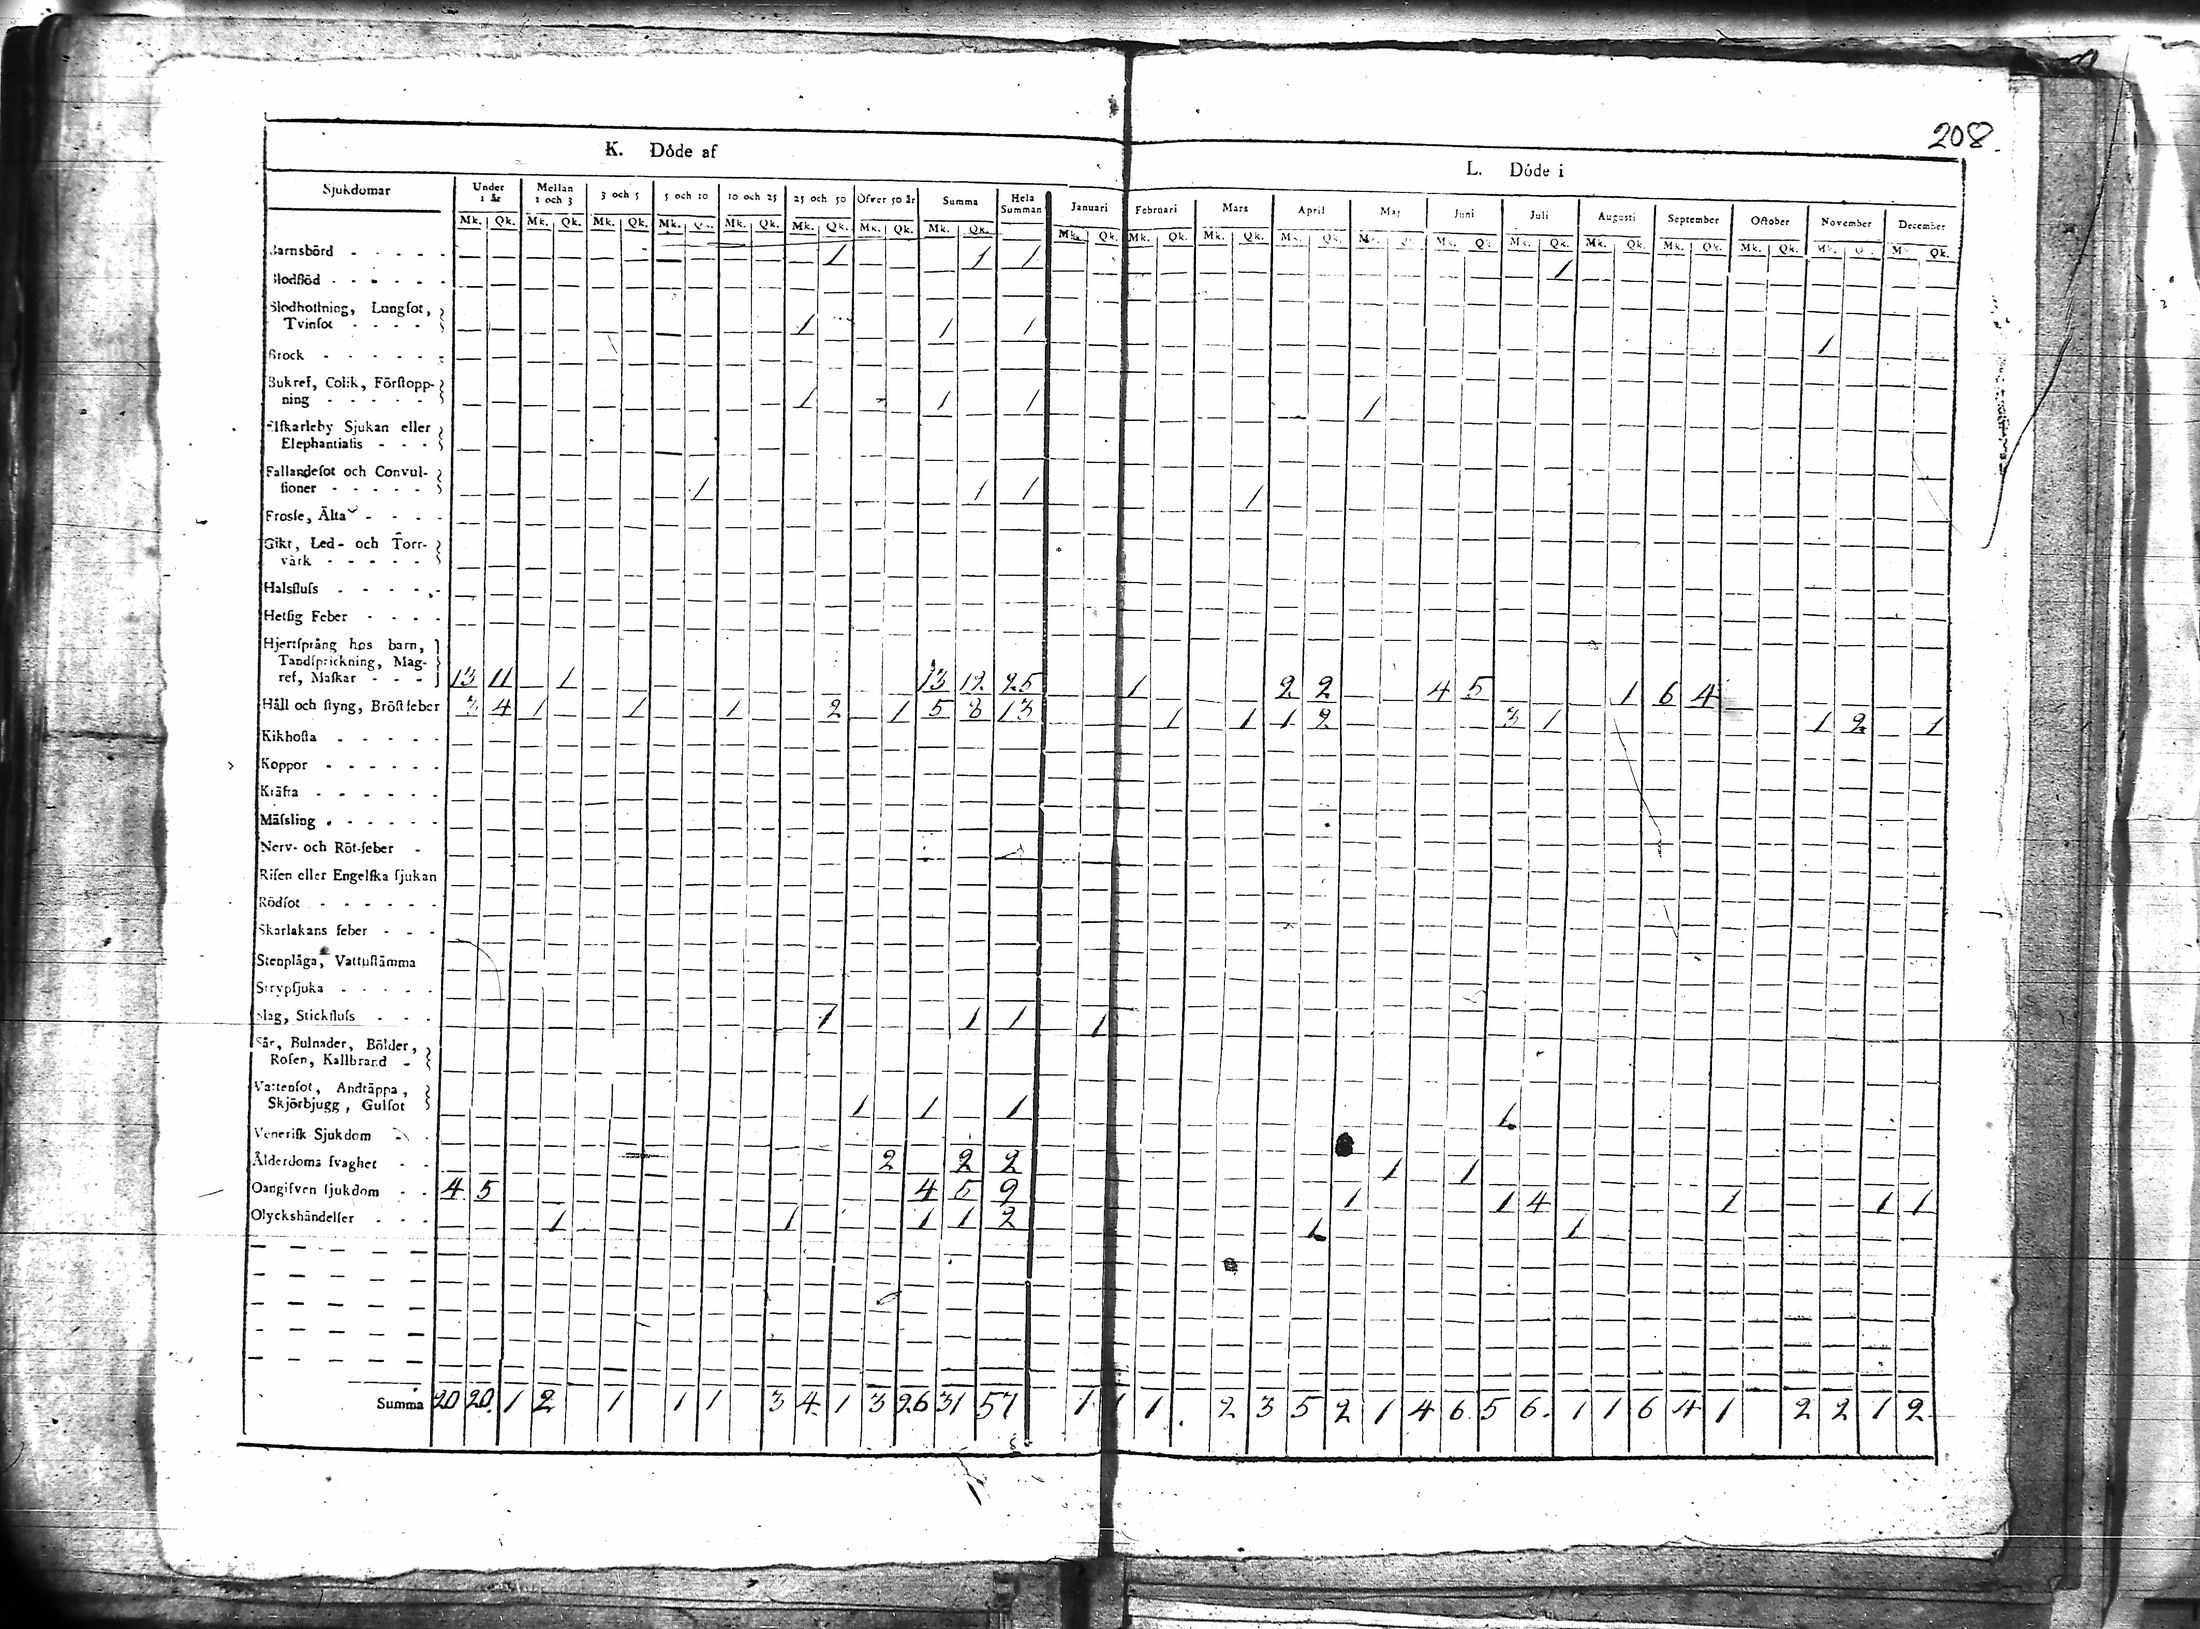 208.
K. Döde af
L. Döde i
Sjukdomar Under 1 år Mellan 1 och 3 3 och 5 5 och 10 10 och 25 25 och 50 Öfver 50 år Summa Hela Summan Januari Februari Mars April Maj Juni Juli Augusti September October November December
Mk. Qk. Mk. Qk. Mk. Qk. Mk. Qk. Mk. Qk. Mk. Qk. Mk. Qk. Mk. Qk. Mk. Qk. Mk. Qk. Mk. Qk. Mk. Qk. Mk. Qk. Mk. Qk. Mk. Qk. Mk. Qk. Mk. Qk. Mk. Qk.
Barnsbörd - - - - - 1 1 1 1
Blodflöd - - - - - -
Blodhostning, Lungsot,
Tvinsot - - - - 1 1 1 1
Brock - - - - - -
Bukref, Colik, Förstopp-
ning - - - - - 1 1 1 1
Elfkarleby Sjukan eller
Elephantiasis - - -
Fallandesot och Convul-
sioner - - - - - 1 1 1 1
Frossa, Älta - - - -
Gikt, Led- och Torr-
värk - - - - -
Halsfluss - - - - -
Hetsig Feber - - - -
Hjertsprång hos barn,
Tandsprickning, Mag-
ref, Maskar - - - 13 11 1 13 12 25 1 2 2 4 5 1 6 4
Håll och styng, Bröstfeber 3 4 1 1 1 2 1 5 8 13 1 1 1 2 3 1 1 2 1
Kikhosta - - - - -
Koppor - - - - - -
Kräfta - - - - - -
Mässling - - - - - -
Nerv- och Röt-feber -
Risen eller Engelska sjukan
Rödsot - - - - - -
Skarlakans feber - - -
Stenplåga, Vattustämma
Strypsjuka - - - - -
Slag, Stickfluss - - - 1 1 1 1
Sår, Bulnader, Bölder,
Rosen, Kallbrand -
Vattensot, Andtäppa,
Skjörbjugg, Gulsot 1 1 1 1
Venerisk Sjukdom - -
Ålderdoms svaghet - - 2 2 2 1 1
Oangifven sjukdom - - 4 5 4 5 9 1 1 4 1 1 1
Olyckshändelser - - - 1 1 1 1 2 1 1
Summa 20 20 1 2 1 1 1 3 4 1 3 26 31 57 1 1 1 2 3 5 2 1 4 6 5 6 1 1 6 4 1 2 2 1 2